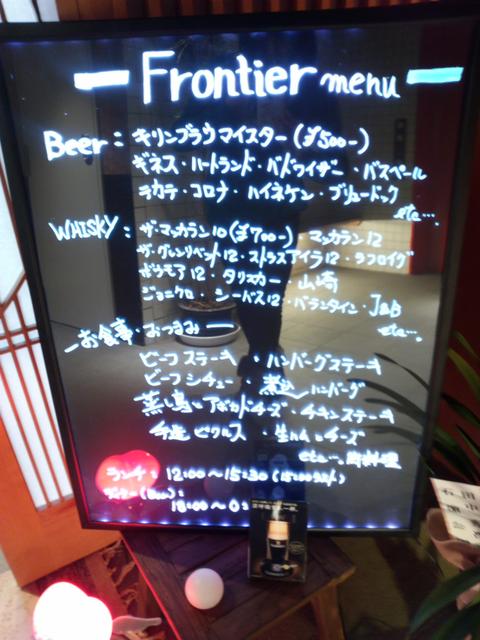 Frontier menu
Beer: キリンブラウマイスター(¥500-)
ギネス・ハートランド・バドワイザー・バスペール
テカテ・コロナ・ハイネケン・ブリュードッグ
etc…
WHISKY: ザ・マッカラン10(¥700-) マッカラン12
ザ・グレンリベット12・ストラスアイラ12・ラフロイグ
ボウモア12・タリスカー・山崎
ジョニクロ・シーバス12・バランタイン・J&B
etc…
お食事・おつまみ
ビーフステーキ・ハンバーグステーキ
ビーフシチュー・煮込ハンバーグ
蒸し鳥とアボカドチーズ・チキンステーキ
手造ピクルス・生ハムとチーズ
etc…
ランチ: 12:00〜15:30
18:00〜0: